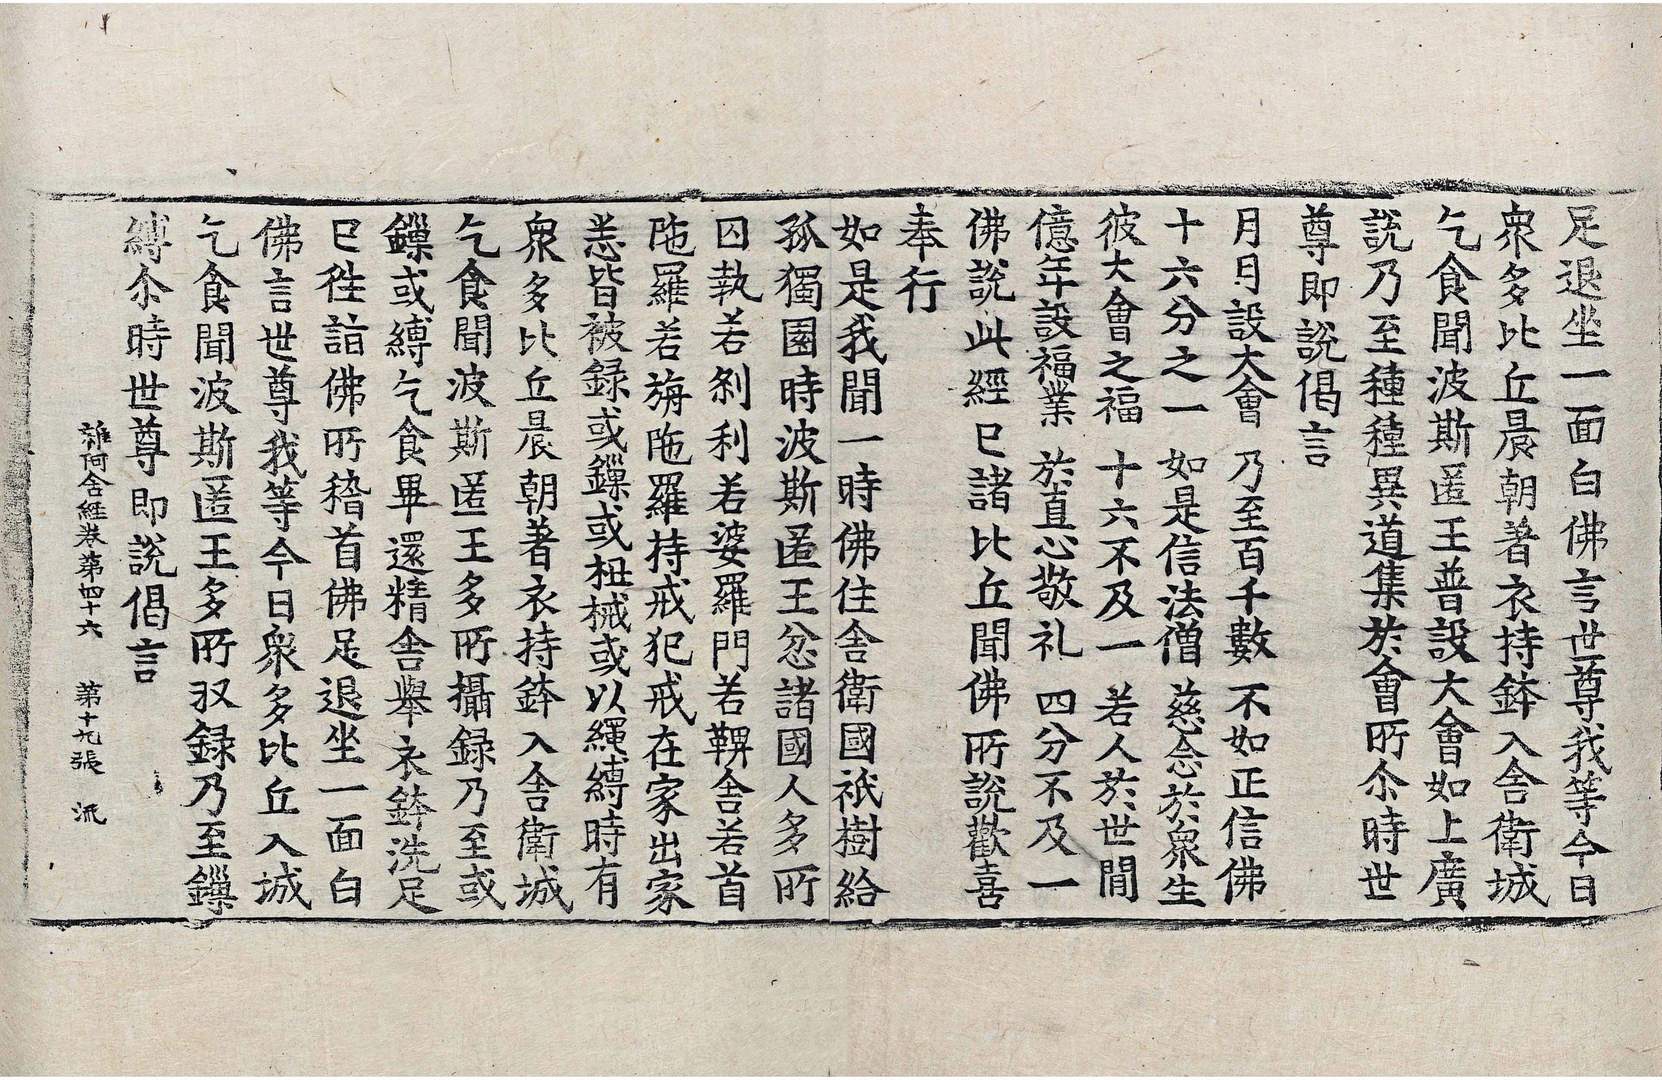 足退坐一面白佛言世尊我等今日
衆多比丘晨朝著衣持鉢入舍衛城
乞食聞波斯匿王普設大會如上廣
說乃至種種異道集於會所尒時世
尊即說偈言
月月設大會 乃至百千數 不如正信佛
十六分之一 如是信法僧 慈念於衆生
彼大會之福 十六不及一 若人於世間
億年設福業 於直心敬礼 四分不及一
佛說此經已諸比丘聞佛所說歡喜
奉行
如是我聞一時佛住舍衛國祇樹給
孤獨園時波斯匿王忿諸國人多所
囚執若刹利若婆羅門若鞞舍若首
陁羅若旃陁羅持戒犯戒在家出家
悉皆被録或鏁或杻械或以繩縛時有
衆多比丘晨朝著衣持鉢入舍衛城
乞食聞波斯匿王多所攝録乃至或
鏁或縛乞食畢還精舍舉衣鉢洗足
已徃詣佛所稽首佛足退坐一面白
佛言世尊我等今日衆多比丘入城
乞食聞波斯匿王多所収録乃至鏁
縛尒時世尊即說偈言
雜阿含經卷第四十六 第十九張 流